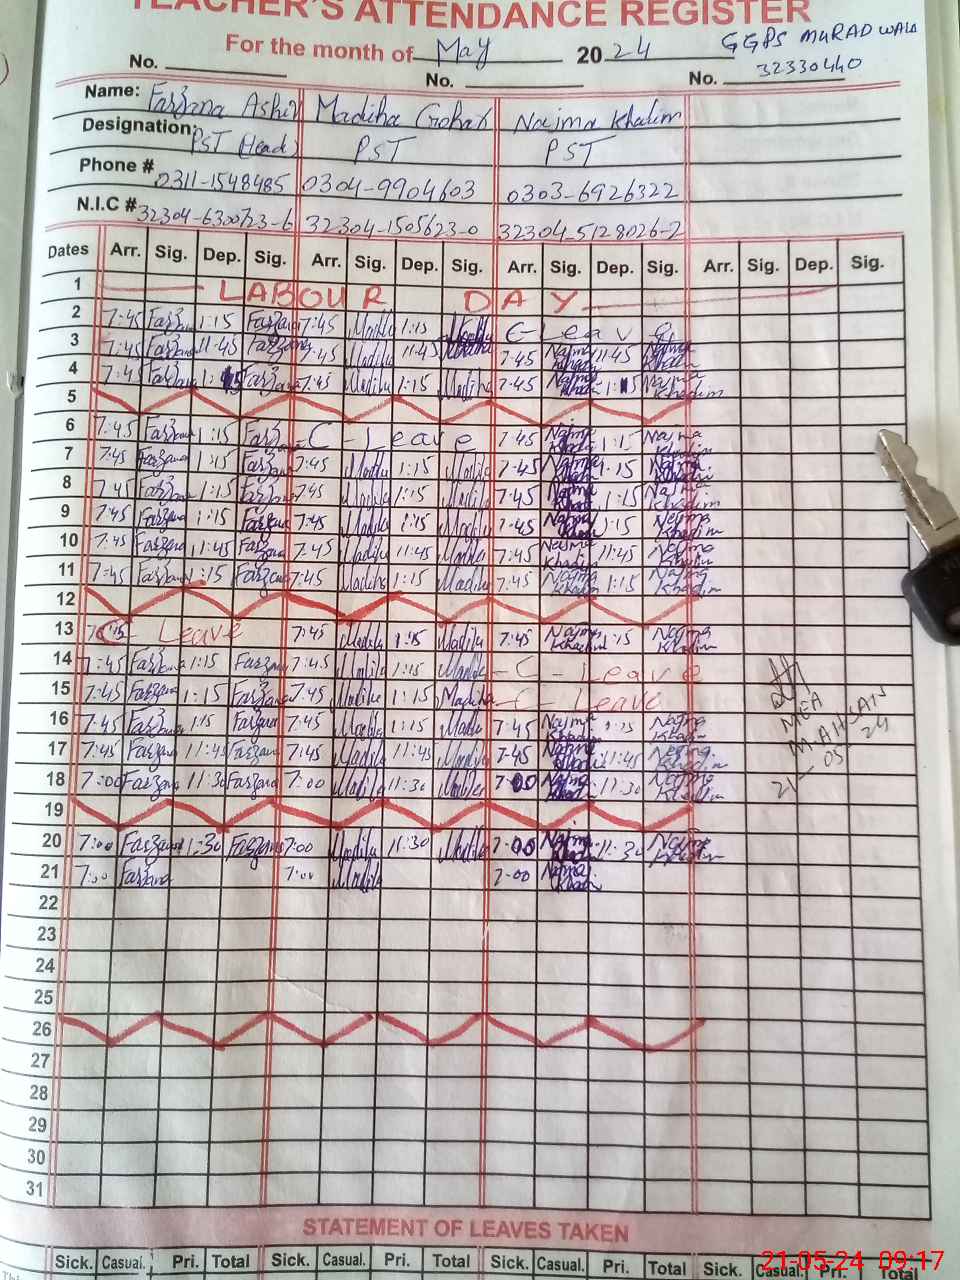 TEACHER'S ATTENDANCE REGISTER
For the month of May 2024 GGPS MURAD WALA
No. No. No. 32330440
Name: Farzana Madiha Gohar Najma Khadim
Designation: PST (Head) PST PST
Phone # 0311-1548485 0304-9904603 0303-6926322
N.I.C # 32304-6300723-6 32304-1505623-0 32304-5128026-2
Dates Arr. Sig. Dep. Sig. Arr. Sig. Dep. Sig. Arr. Sig. Dep. Sig. Arr. Sig. Dep. Sig.
1 LABOUR DAY
2 7:45 Farzana 1:15 Farzana 7:45 Madiha 1:15 Madiha C-Leave
3 7:45 Farzana 11:45 Farzana 7:45 Madiha 11:45 Madiha 7-45 Najma Khadim 11:45 Najma Khadim
4 7:45 Farzana 1:15 Farzana 7:45 Madiha 1:15 Madiha 7-45 Najma Khadim 1:15 Najma Khadim
5
6 7:45 Farzana 1:15 Farzana C-Leave 7-45 Najma Khadim 1:15 Najma Khadim
7 7:45 Farzana 1:15 Farzana 7:45 Madiha 1:15 Madiha 7-45 Najma Khadim 1:15 Najma Khadim
8 7:45 Farzana 1:15 Farzana 7:45 Madiha 1:15 Madiha 7-45 Najma Khadim 1:15 Najma Khadim
9 7:45 Farzana 1:15 Farzana 7:45 Madiha 1:15 Madiha 7-45 Najma Khadim 1:15 Najma Khadim
10 7:45 Farzana 11:45 Farzana 7:45 Madiha 11:45 Madiha 7:45 Najma Khadim 11:45 Najma Khadim
11 7:45 Farzana 1:15 Farzana 7:45 Madiha 1:15 Madiha 7-45 Najma Khadim 1:15 Najma Khadim
12
13 C- Leave 7:45 Madiha 1:15 Madiha 7-45 Najma Khadim 1:15 Najma Khadim
14 7:45 Farzana 1:15 Farzana 7:45 Madiha 1:15 Madiha -C-Leave
15 7:45 Farzana 1:15 Farzana 7:45 Madiha 1:15 Madiha -C-Leave
16 7:45 Farzana 1:15 Farzana 7:45 Madiha 1:15 Madiha 7-45 Najma Khadim 1:15 Najma Khadim
17 7:45 Farzana 11:45 Farzana 7:45 Madiha 11:45 Madiha 7-45 Najma Khadim 11:45 Najma Khadim
18 7:00 Farzana 11:30 Farzana 7:00 Madiha 11:30 Madiha 7-00 Najma Khadim 11:30 Najma Khadim
19
20 7:00 Farzana 11:30 Farzana 7:00 Madiha 11:30 Madiha 7-00 Najma Khadim 11:30 Najma Khadim
21 7:00 Farzana 7:00 Madiha 7-00 Najma Khadim
22
23
24
25
26
27
28
29
30
31
MEA
M. AHSAN
21-05-24
STATEMENT OF LEAVES TAKEN
Sick. Casual. Pri. Total Sick. Casual. Pri. Total Sick. Casual. Pri. Total Sick. Casual. Pri. Total
21-05-24 09:17